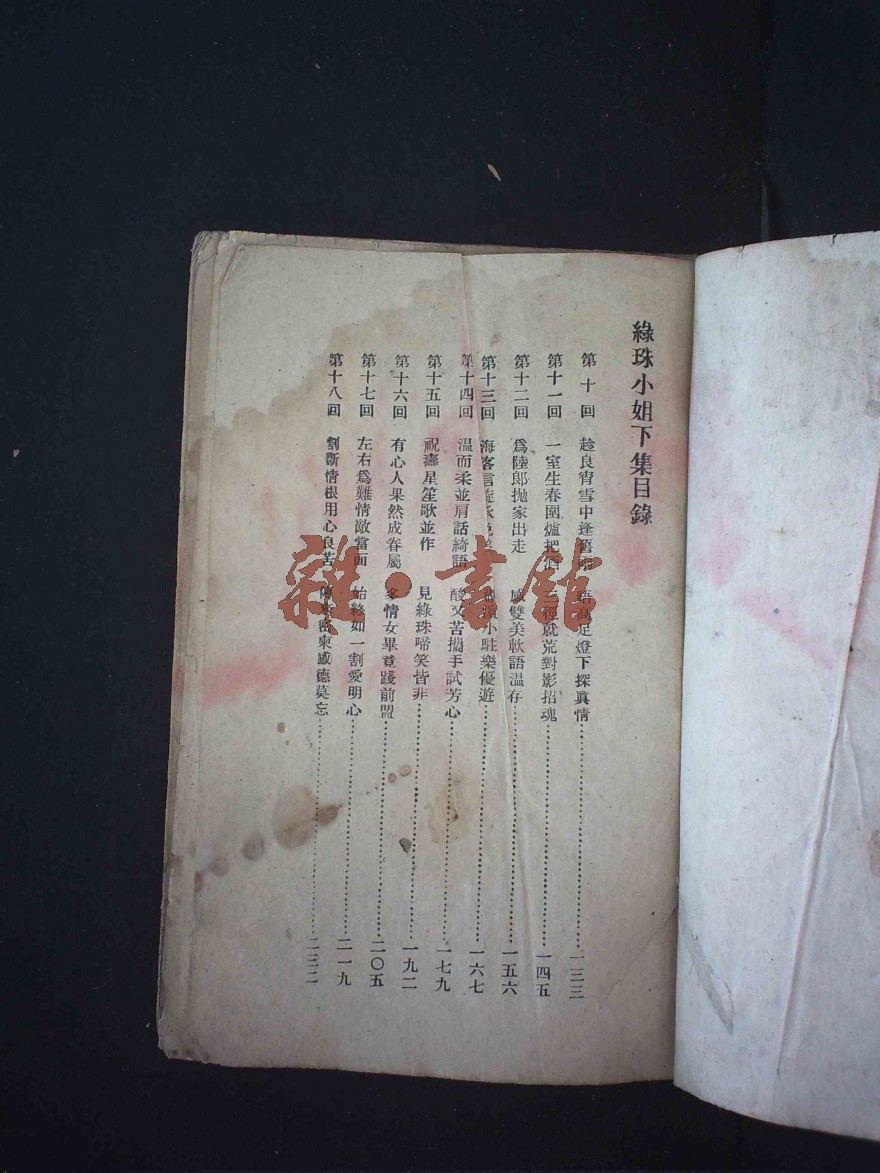 綠珠小姐下集目錄
第十回 趁良宵雪中逢舊 高足燈下探眞情 一三三
第十一回 一室生春圍爐把酒 三徑就荒對影招魂 一四五
第十二回 爲陸郎拋家出走 感雙美軟語溫存 一五六
第十三回 海客言旋 小駐樂優遊 一六七
第十四回 温而柔並肩話綺語 酸又苦携手試芳心 一七九
第十五回 祝壽星笙歌並作 見綠珠啼笑皆非 一九二
第十六回 有心人果然成眷屬 多情女畢竟踐前盟 二〇五
第十七回 左右爲難情敵當面 始終如一割愛明心 二一九
第十八回 割斷情根用心良苦 密柬感德莫忘 二三二
雜·書館